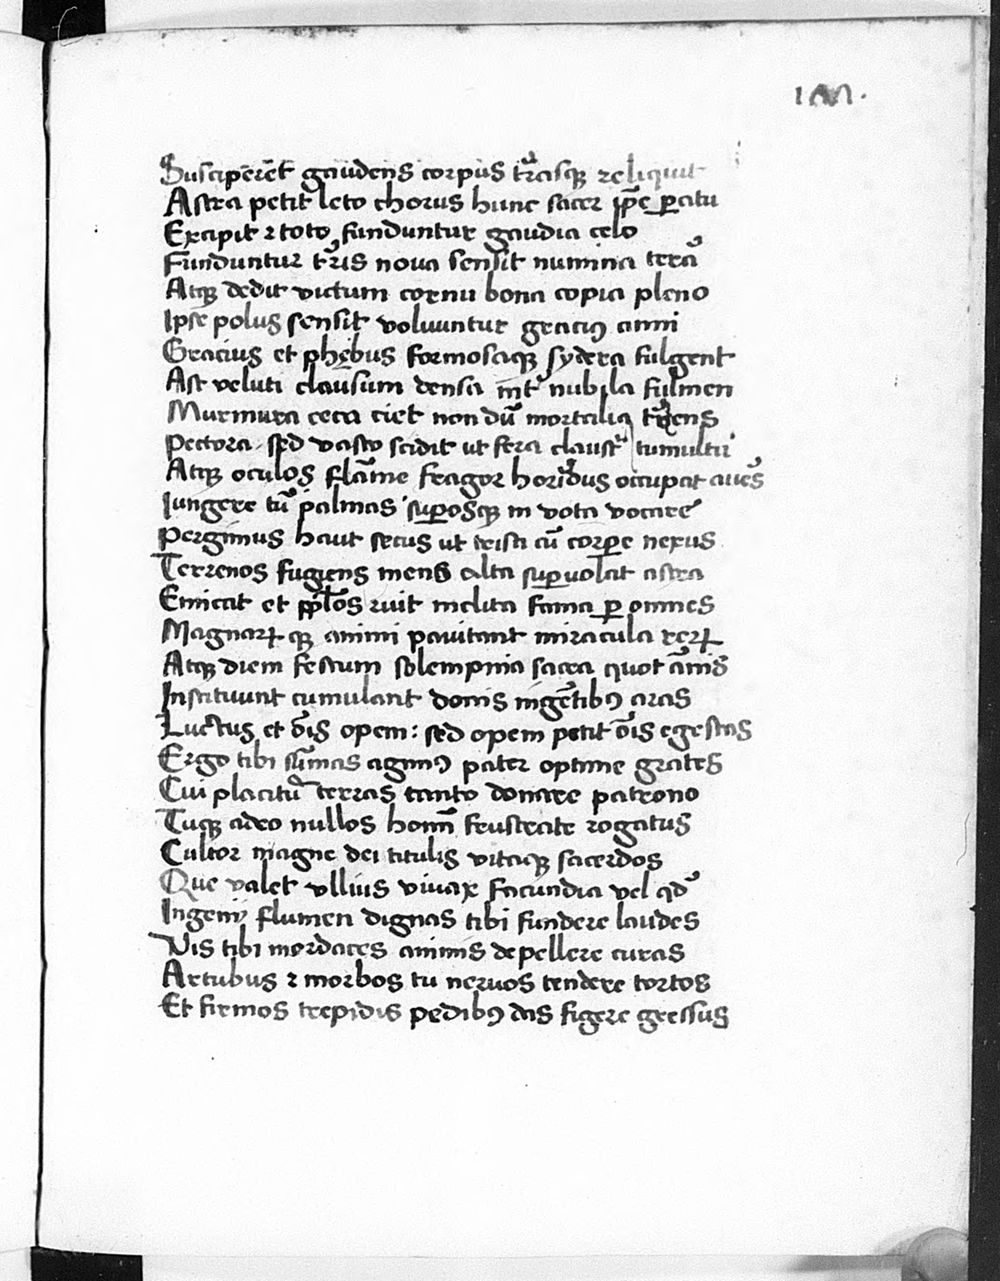 Susciperēt gaudens corpus t̄rasqꝫ reliquit
Astra petit leto chorus hunc sacer ip̄e ꝑatu
Excipit ⁊ toto funduntur gaudia celo
Funduntur t̄ris noua sensit numina terā
Atqꝫ dedit victum cornu bona copia pleno
Ipse polus sensit voluuntur graciꝰ anni
Gracius et phębus formosaqꝫ sydera fulgent
Ast veluti clausum densa int̄ nubila fulmen
Murmura ceca ciet non dū mortalia t̄rens
Pectora sed vasto scidit ut fera claustr̄ tumultu
Atqꝫ oculos flāme fragor horībus occupat aures
Iungere tū palmas suꝑosqꝫ in vota vocare
Pergimus haut secus ut tristi cū corꝑe nexus
Terrenos fugiens mens alta suꝑuolat astra
Emicat et pp̄los ruit inclita fama ꝑ omnes
Magnaꝝ qꝫ animi pauitant miracula reꝝ
Atqꝫ diem festum solempnia sacra quot ānis
Instituunt cumulant donis ingētibꝰ aras
Luctus et ōis opem: sed opem petit ōis egestas
Ergo tibi sūmas agimꝰ pater optime grates
Cui placitū terras tanto donare patrono
Tuqꝫ adeo nullos homī frustrate rogatus
Cultor magne dei titulis vitaqꝫ sacerdos
Que valet vllius viuax facundia vel qd̄
Ingenij flumen dignas tibi fundere laudes
Vis tibi mordaces animis depellere curas
Artubus ⁊ morbos tu neruos tendere tortos
Et firmos trepidis pedibꝰ das figere gressus